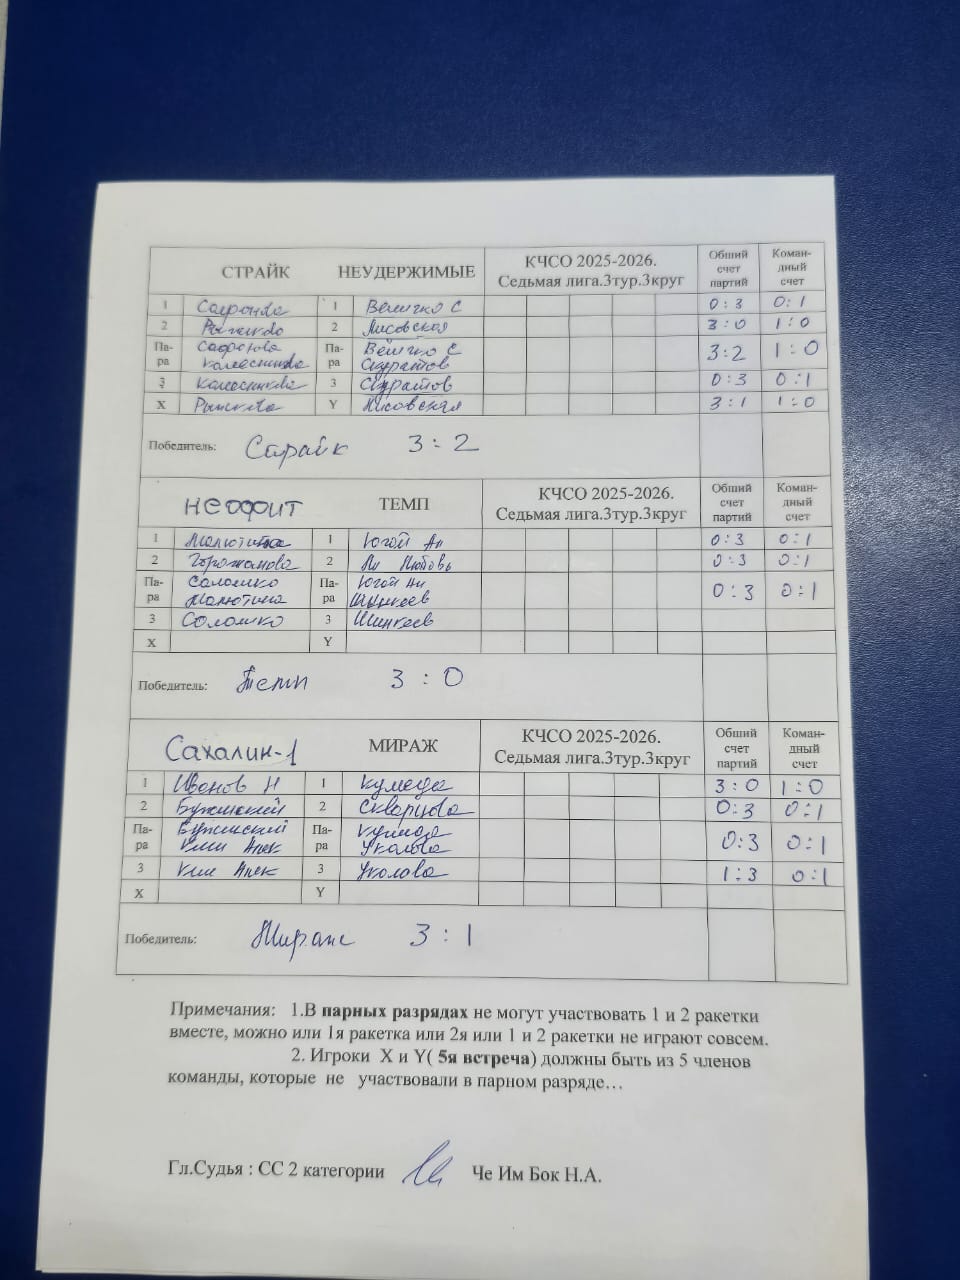 СТРАЙК НЕУДЕРЖИМЫЕ КЧСО 2025-2026. Седьмая лига.3тур.3круг Общий счет партий Коман-дный счет
1 1 Величко С 0:3 0:1
2 2 Лисовская 3:0 1:0
Па-ра Сафонова Па-ра Величко С 3:2 1:0
Колесникова Скуратов
3 Колесникова 3 Скуратов 0:3 0:1
X Y Лисовская 3:1 1:0
Победитель: Страйк 3:2
НЕОФИТ ТЕМП КЧСО 2025-2026. Седьмая лига.3тур.3круг Общий счет партий Коман-дный счет
1 Малютина 1 Югой Ан 0:3 0:1
2 2 Ли Любовь 0:3 0:1
Па-ра Соломко Па-ра Югой Ан 0:3 0:1
Малютина Шинкеев
3 Соломко 3 Шинкеев
X Y
Победитель: Темп 3:0
Сахалин-1 МИРАЖ КЧСО 2025-2026. Седьмая лига.3тур.3круг Общий счет партий Коман-дный счет
1 Иванов Н 1 3:0 1:0
2 Бужинский 2 Скварцова 0:3 0:1
Па-ра Бужинский Па-ра 0:3 0:1
Ким Анек Уколова
3 Ким Анек 3 Уколова 1:3 0:1
X Y
Победитель: Мираж 3:1
Примечания: 1.В парных разрядах не могут участвовать 1 и 2 ракетки
вместе, можно или 1я ракетка или 2я или 1 и 2 ракетки не играют совсем.
2. Игроки X и Y( 5я встреча) должны быть из 5 членов
команды, которые не участвовали в парном разряде…
Гл.Судья : СС 2 категории Че Им Бок Н.А.